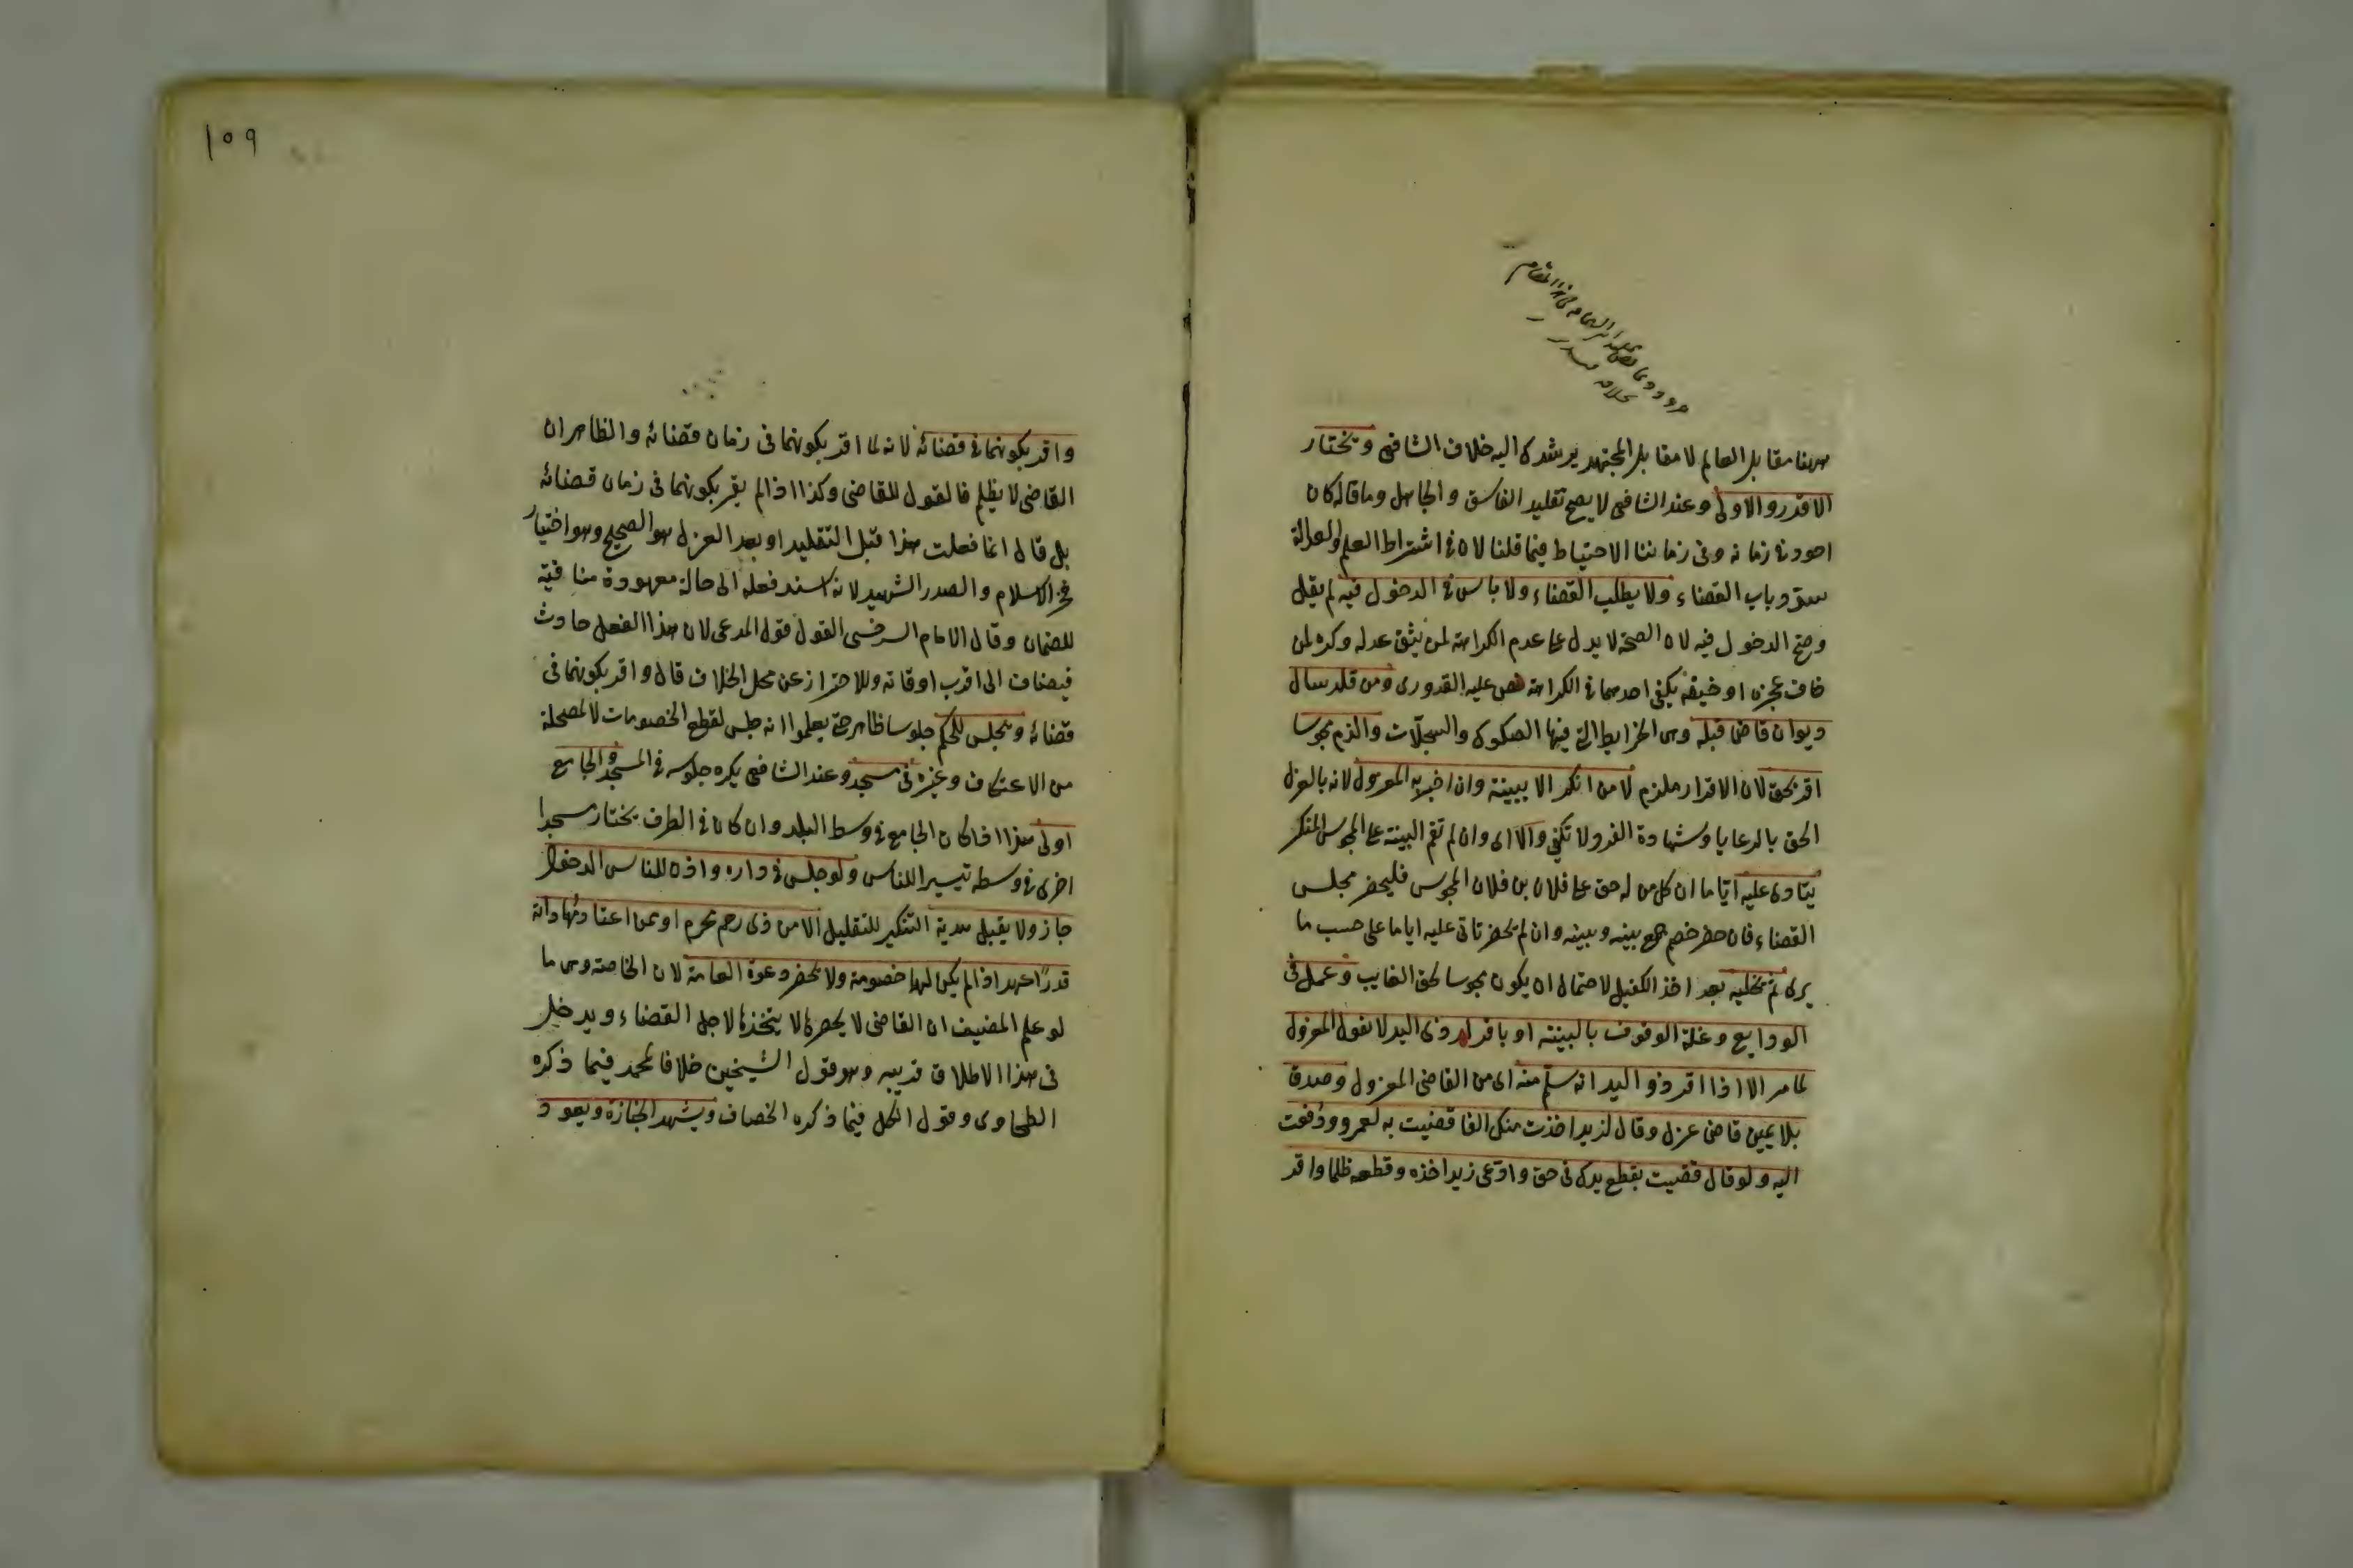 ههنا مقابل العالم لا مقابل المجتهد يرشدك اليه خلاف الشافعي ويختار
الاقدر والاولى وعند الشافعي لا يصح تقليد الفاسق والجاهل وما قاله كان
احوط في زمانه وفي زماننا الاحتياط فيما قلنا لان في اشتراط العلم والعدالة
سد باب القضاء ولا يطلب القضاء ولا باس في الدخول فيه لم يقل
وصح الدخول فيه لان الصحة لا يدل على عدم الكراهة لمن يثق عدله وكره لمن
خاف عجزه او حيفه يكفي احدهما في الكراهة نص عليه القدوري ومن قلد سال
ديوان قاض قبله وهي الخرايط التي فيها الصكوك والسجلات والزم محبوسا
اقر بحق لان الاقرار ملزم لا من انكر الا ببينة وان اخبر به المعزول لانه بالعزل
الحق بالرعايا وشهادة الفرد لا تكفي والا اى وان لم تقم البينة على المحبوس المنكر
ينادى عليه اياما ان كل من له حق على فلان بن فلان المحبوس فليحضر مجلس
القضاء فان حضر خصم جمع بينه وبينه وان لم يحضر تاتى عليه اياما على حسب ما
يرى ثم يخليه بعد اخذ الكفيل لاحتمال ان يكون محبوسا لحق الغايب وعمل في
الودايع وغلة الوقوف بالبينة او باقرار ذى اليد لا بقول المعزول
لما مر الا اذا اقر ذو اليد انه سلم منه اى من القاضى المعزول وصدق
بلا يمين قاض عزل وقال لزيد اخذت منك الفا قضيت به لعمرو ودفعت
اليه ولو قال قضيت بقطع يدك في حق وادعى زيد اخذه وقطعه ظلما واقر
١٥٩
واقر بكونهما في قضائه لانه لما اقر بكونهما في زمان قضائه والظاهر ان
القاضى لا يظلم فالقول للقاضى وكذا اذا لم يقر بكونهما في زمان قضائه
بل قال انما فعلت هذا قبل التقليد او بعد العزل هو الصحيح وهو اختيار
فخر الاسلام والصدر الشهيد لانه اسند فعله الى حالة معهودة منافية
للضمان وقال الامام السرخسى القول قول المدعى لان هذا الفعل حادث
فيضاف الى اقرب اوقاته وللاحتراز عن محل الخلاف قال واقر بكونهما في
قضائه ويجلس للحكم جلوسا ظاهر حتى يعلموا انه جلس لقطع الخصومات لا لمصلحة
من الاعتكاف وغيره في مسجد وعند الشافعي يكره جلوسه في المسجد والجامع
اولى هذا اذا كان الجامع في وسط البلد وان كان في الطرف يختار مسجدا
اخرى في وسطه تيسيرا للناس ولو جلس في داره واذن للناس الدخول
جاز ولا يقبل هدية التنكير للتقليل الا من ذى رحم محرم او ممن اعتاد مهاداته
قدرا عهد اذا لم يكن لهما خصومة ولا يحضر دعوة العامة لان الخاصة وهى ما
لو علم المضيف ان القاضى لا يحضرها لا يتخذها لاجل القضاء ويدخل
في هذا الاطلاق قريبه وهو قول الشيخين خلافا لمحمد فيما ذكره
الطحاوى وقول الكل فيما ذكره الخصاف ويشهد الجنازة ويعود